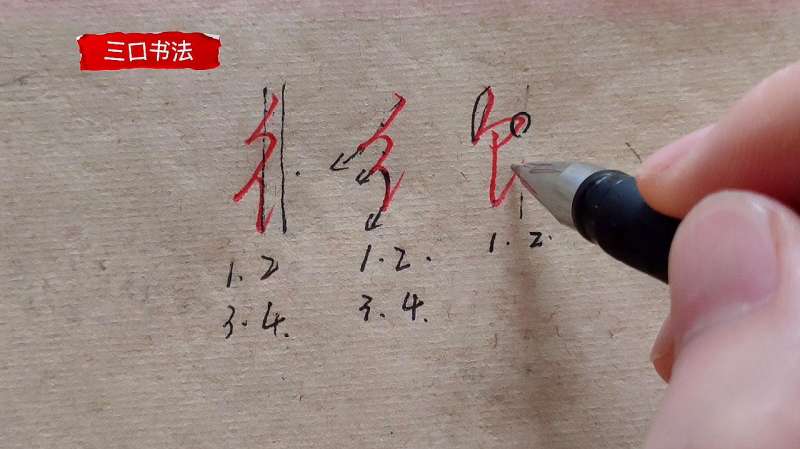 三口书法
扌 犭 饣
1. 2 1. 2. 1. 2.
3. 4. 3. 4.